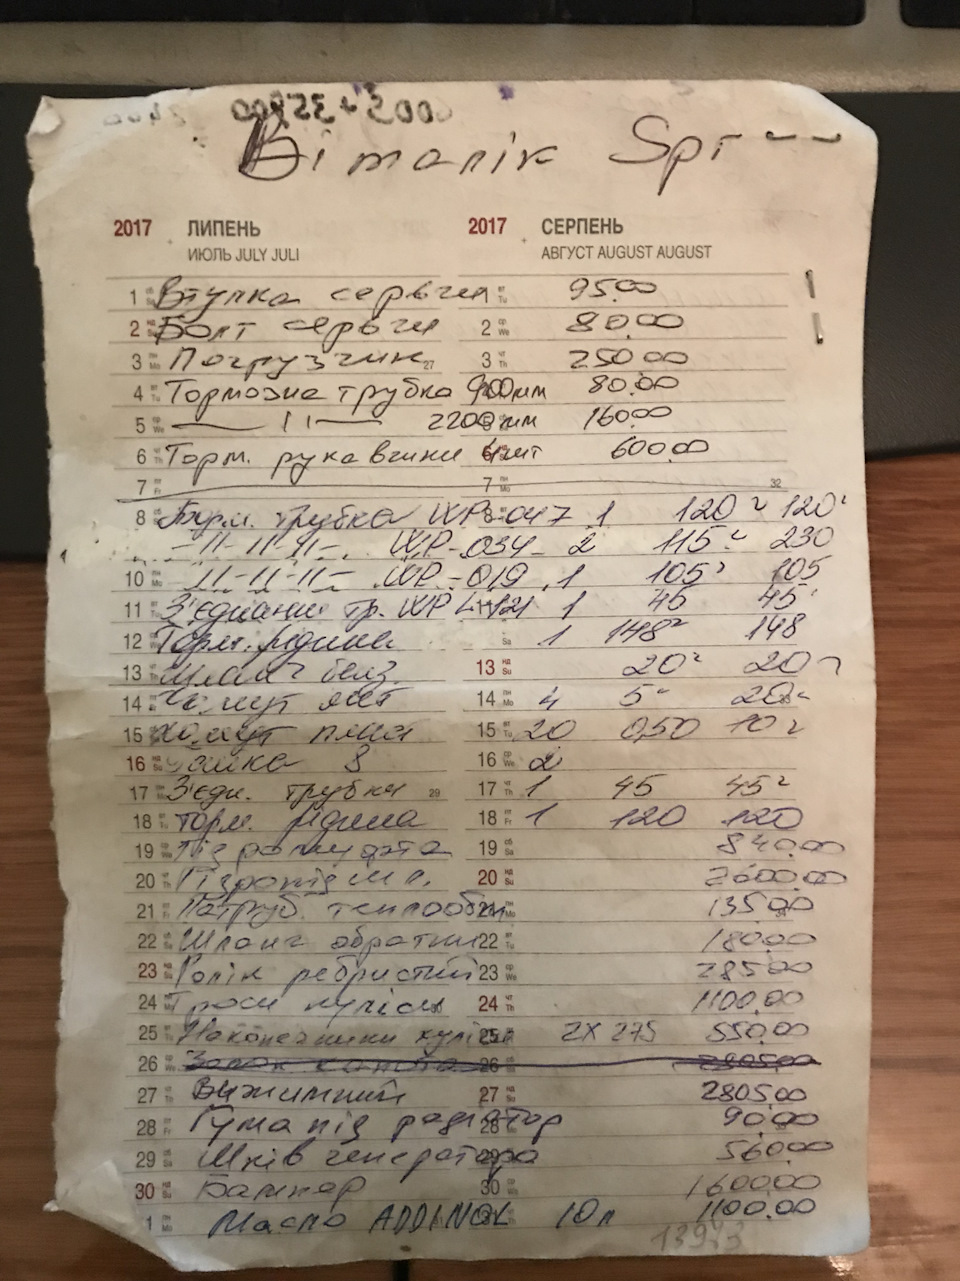 Віталік Spr
2017 ЛИПЕНЬ 2017 СЕРПЕНЬ
ИЮЛЬ JULY JULI АВГУСТ AUGUST AUGUST
1 Втулка серьги 95.00
2 Болт серьги 2 80.00
3 Погрузчик 27 3 250.00
4 Тормозна трубка 900мм 80.00
5 —〃— 2200мм 160.00
6 Торм. рукавчики 4шт 600.00
7 7 32
8 Торм. трубка WP-047 1 120 120
-11-11-11- WP-034 2 115 230
10 -11-11-11- WP-019 1 105 105
11 З'єднання тр. WP 1 45 45
12 Торм. рідина 1 148 148
13 Шланг бенз. 13 20 20
14 Хомут 14 4 5 20
15 Хомут 15 20 0,50 10
16 Гайка 8 16 2
17 З'єдн. трубки 29 17 1 45 45
18 Торм. рідина 18 1 120 120
19 Гідромуфта 19 840.00
20 20 2600.00
21 Патруб. теплообм 135.00
22 Шланг обратки 22 180.00
23 Ролік ребристий 23 285.00
24 Троси куліси 24 1100.00
25 Наконечники куліси 2X275 550.00
26 26 2805.00
27 Вижимний 27 2805.00
28 Гума під радіатор 90.00
29 Шків генератора 560.00
30 Бампер 30 1600.00
1 Масло ADDINOL 10л 1100.00
13973